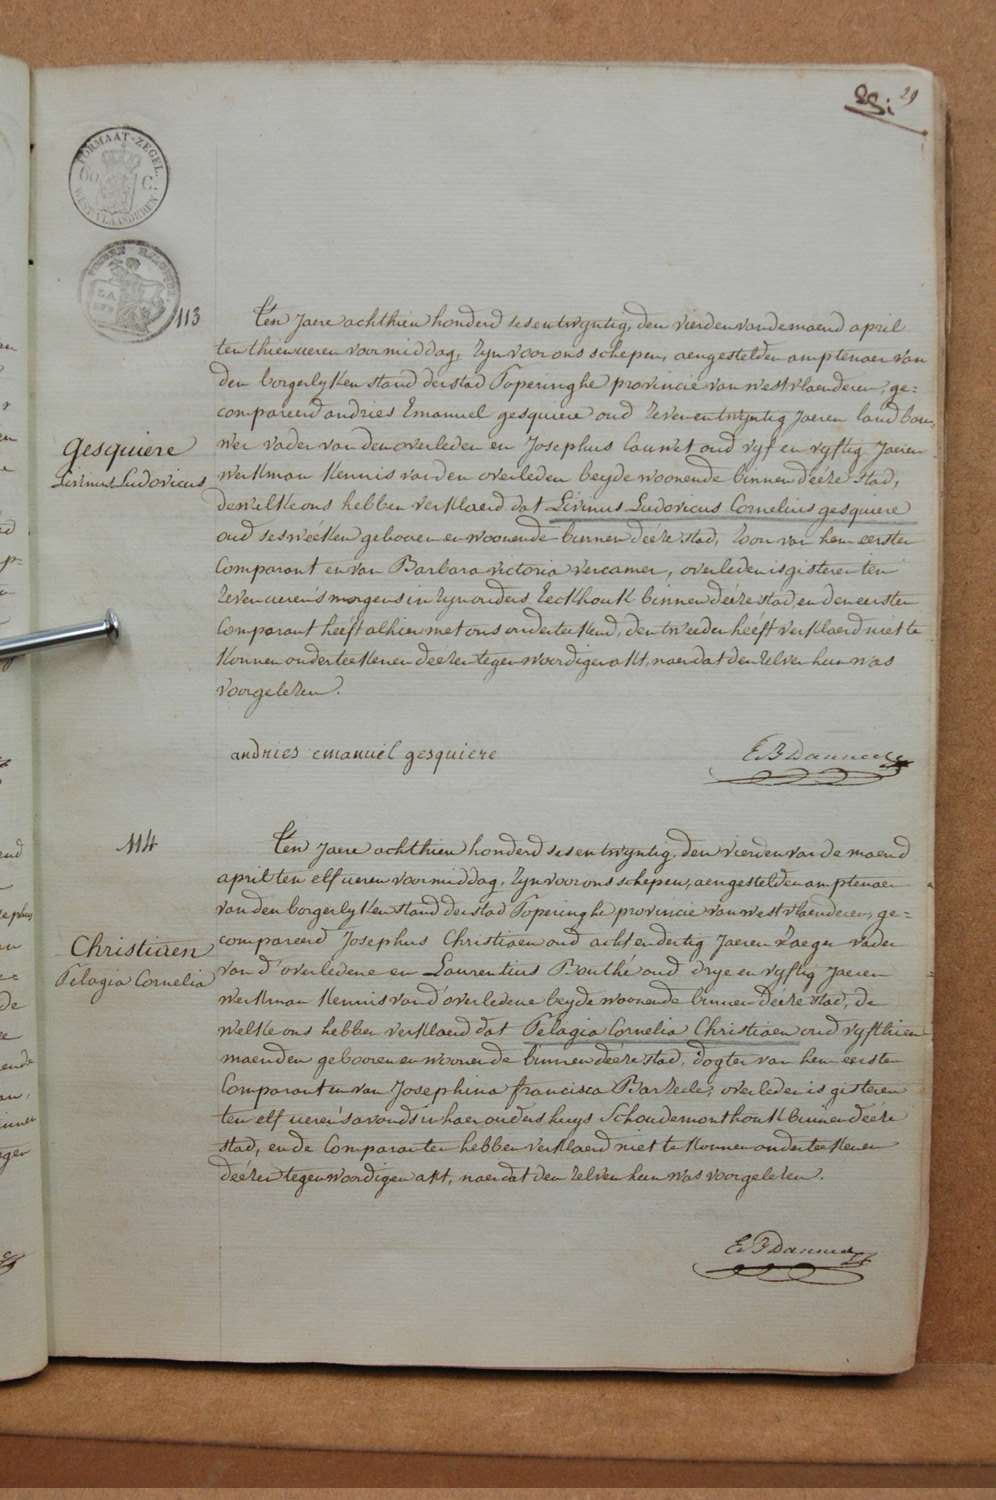 28i 29
FORMAAT-ZEGEL
WEST VLAANDEREN
113
Ten Jaere achthien honderd sesentwyntig, den vierden van de maend april
ten thien ueren voormiddag, Zyn voor ons schepen, aengestelden amptenaer van
den borgerlyken stand der stad Poperinghe provincie van westvlaenderen, ge=
compareerd andries Emanuel gesquiere oud Zevenentwyntig Jaeren landbou
wer vader van den overleden en Josephus Cauwet oud vyf en vyftig Jaeren
gesquiere
Livinus Ludovicus
werkman kennis van den overleden beyde woonende binnen deéze stad,
dewelke ons hebben verklaerd dat Livinus Ludovicus Cornelius gesquiere
oud ses wéeken gebooren en woonende binnen déeze stad, Zoon van hem eersten
Comparant en van Barbara victoria vercamer, overleden is gisteren ten
Zeven ueren s'morgens in Zyn ouders Eeckhouk binnen déeze stad, en den eersten
Comparant heeft alhier met ons onderteekend, den tweeden heéft verklaerd niet te
konnen onderteekenen deézen tegenwoordigen akt, naer dat den Zelven hun was
voorgelezen.
andries emanuel gesquiere
114
Ten Jaere achthien honderd sesentwyntig, den vierden van de maend
april ten elf ueren voormiddag, Zyn voor ons schepen, aengestelden amptenaer
van den borgerlyken stand der stad Poperinghe provincie van westvlaenderen, ge=
compareerd Josephus Christiaen oud acht en dertig Jaeren Zaeger vader
Christiaen
Pelagia Cornelia
van d'overledene en Laurentius Bouthé oud drye en vyftig Jaeren
werkman kennis van d'overledene beyde woonende binnen deéze stad, de
welke ons hebben verklaerd dat Pelagia Cornelia Christiaen oud vyfthien
maenden gebooren en woonende binnen déeze stad, dogter van hem eersten
Comparant en van Josephina francisca Barzeele, overleden is gisteren
ten elf ueren s'avonds in haer ouders huys Schoudemonthouk binnen deeze
stad, en de Comparanten hebben verklaerd niet te konnen onderteekenen
deézen tegenwoordigen akt, naer dat den Zelven hun was voorgelezen.